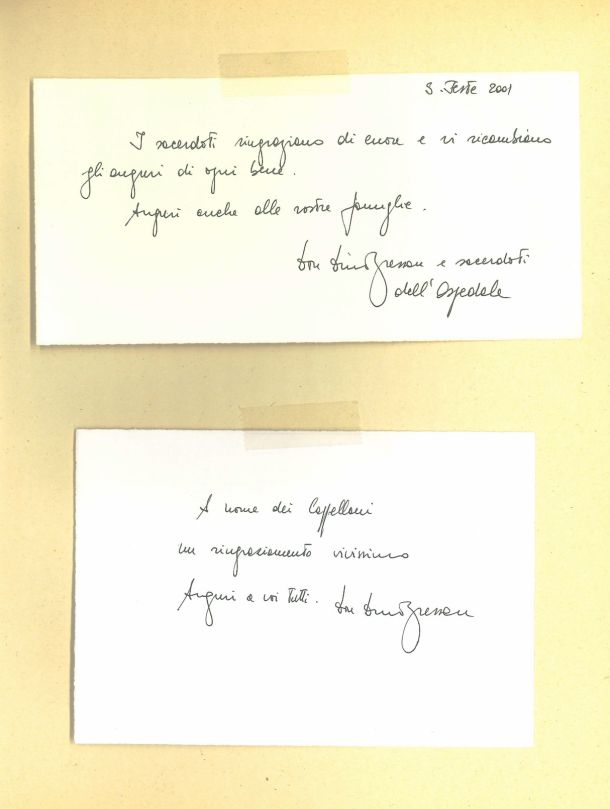 S. Feste 2001
I sacerdoti ringraziano di cuore e vi ricambiano
gli auguri di ogni bene.
Auguri anche alle vostre famiglie.
Don Dino Bressan e sacerdoti
dell'Ospedale
A nome dei Cappellani
un ringraziamento vivissimo
Auguri a voi tutti. Don Dino Bressan